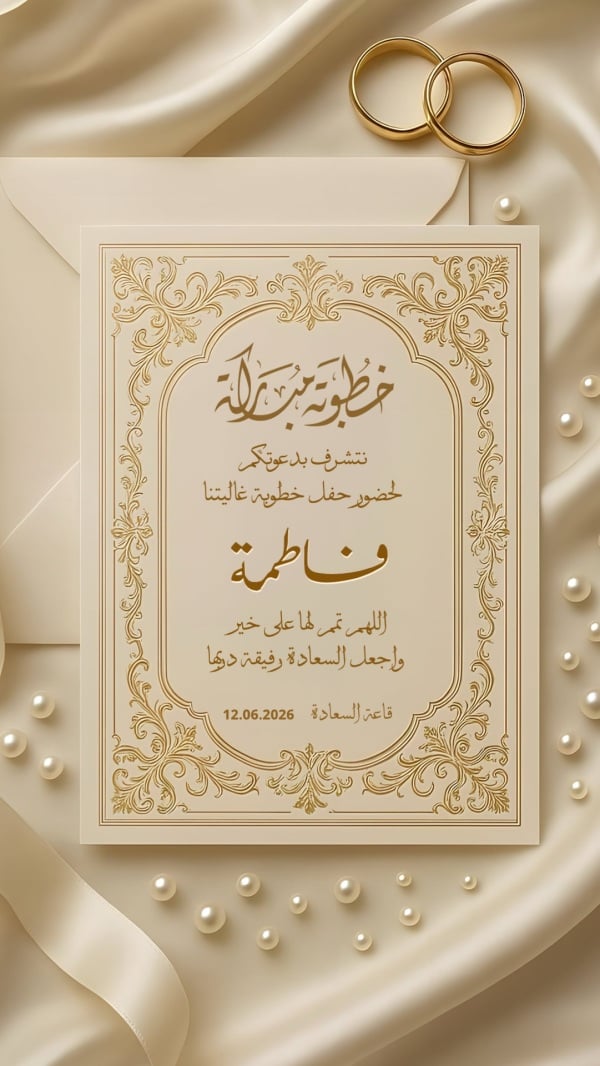 خطوبة مباركة
نتشرف بدعوتكم
لحضور حفل خطوبة غاليتنا
فاطمة
اللهم تمم لها على خير
واجعل السعادة رفيقة دربها
قاعة السعادة 12.06.2026